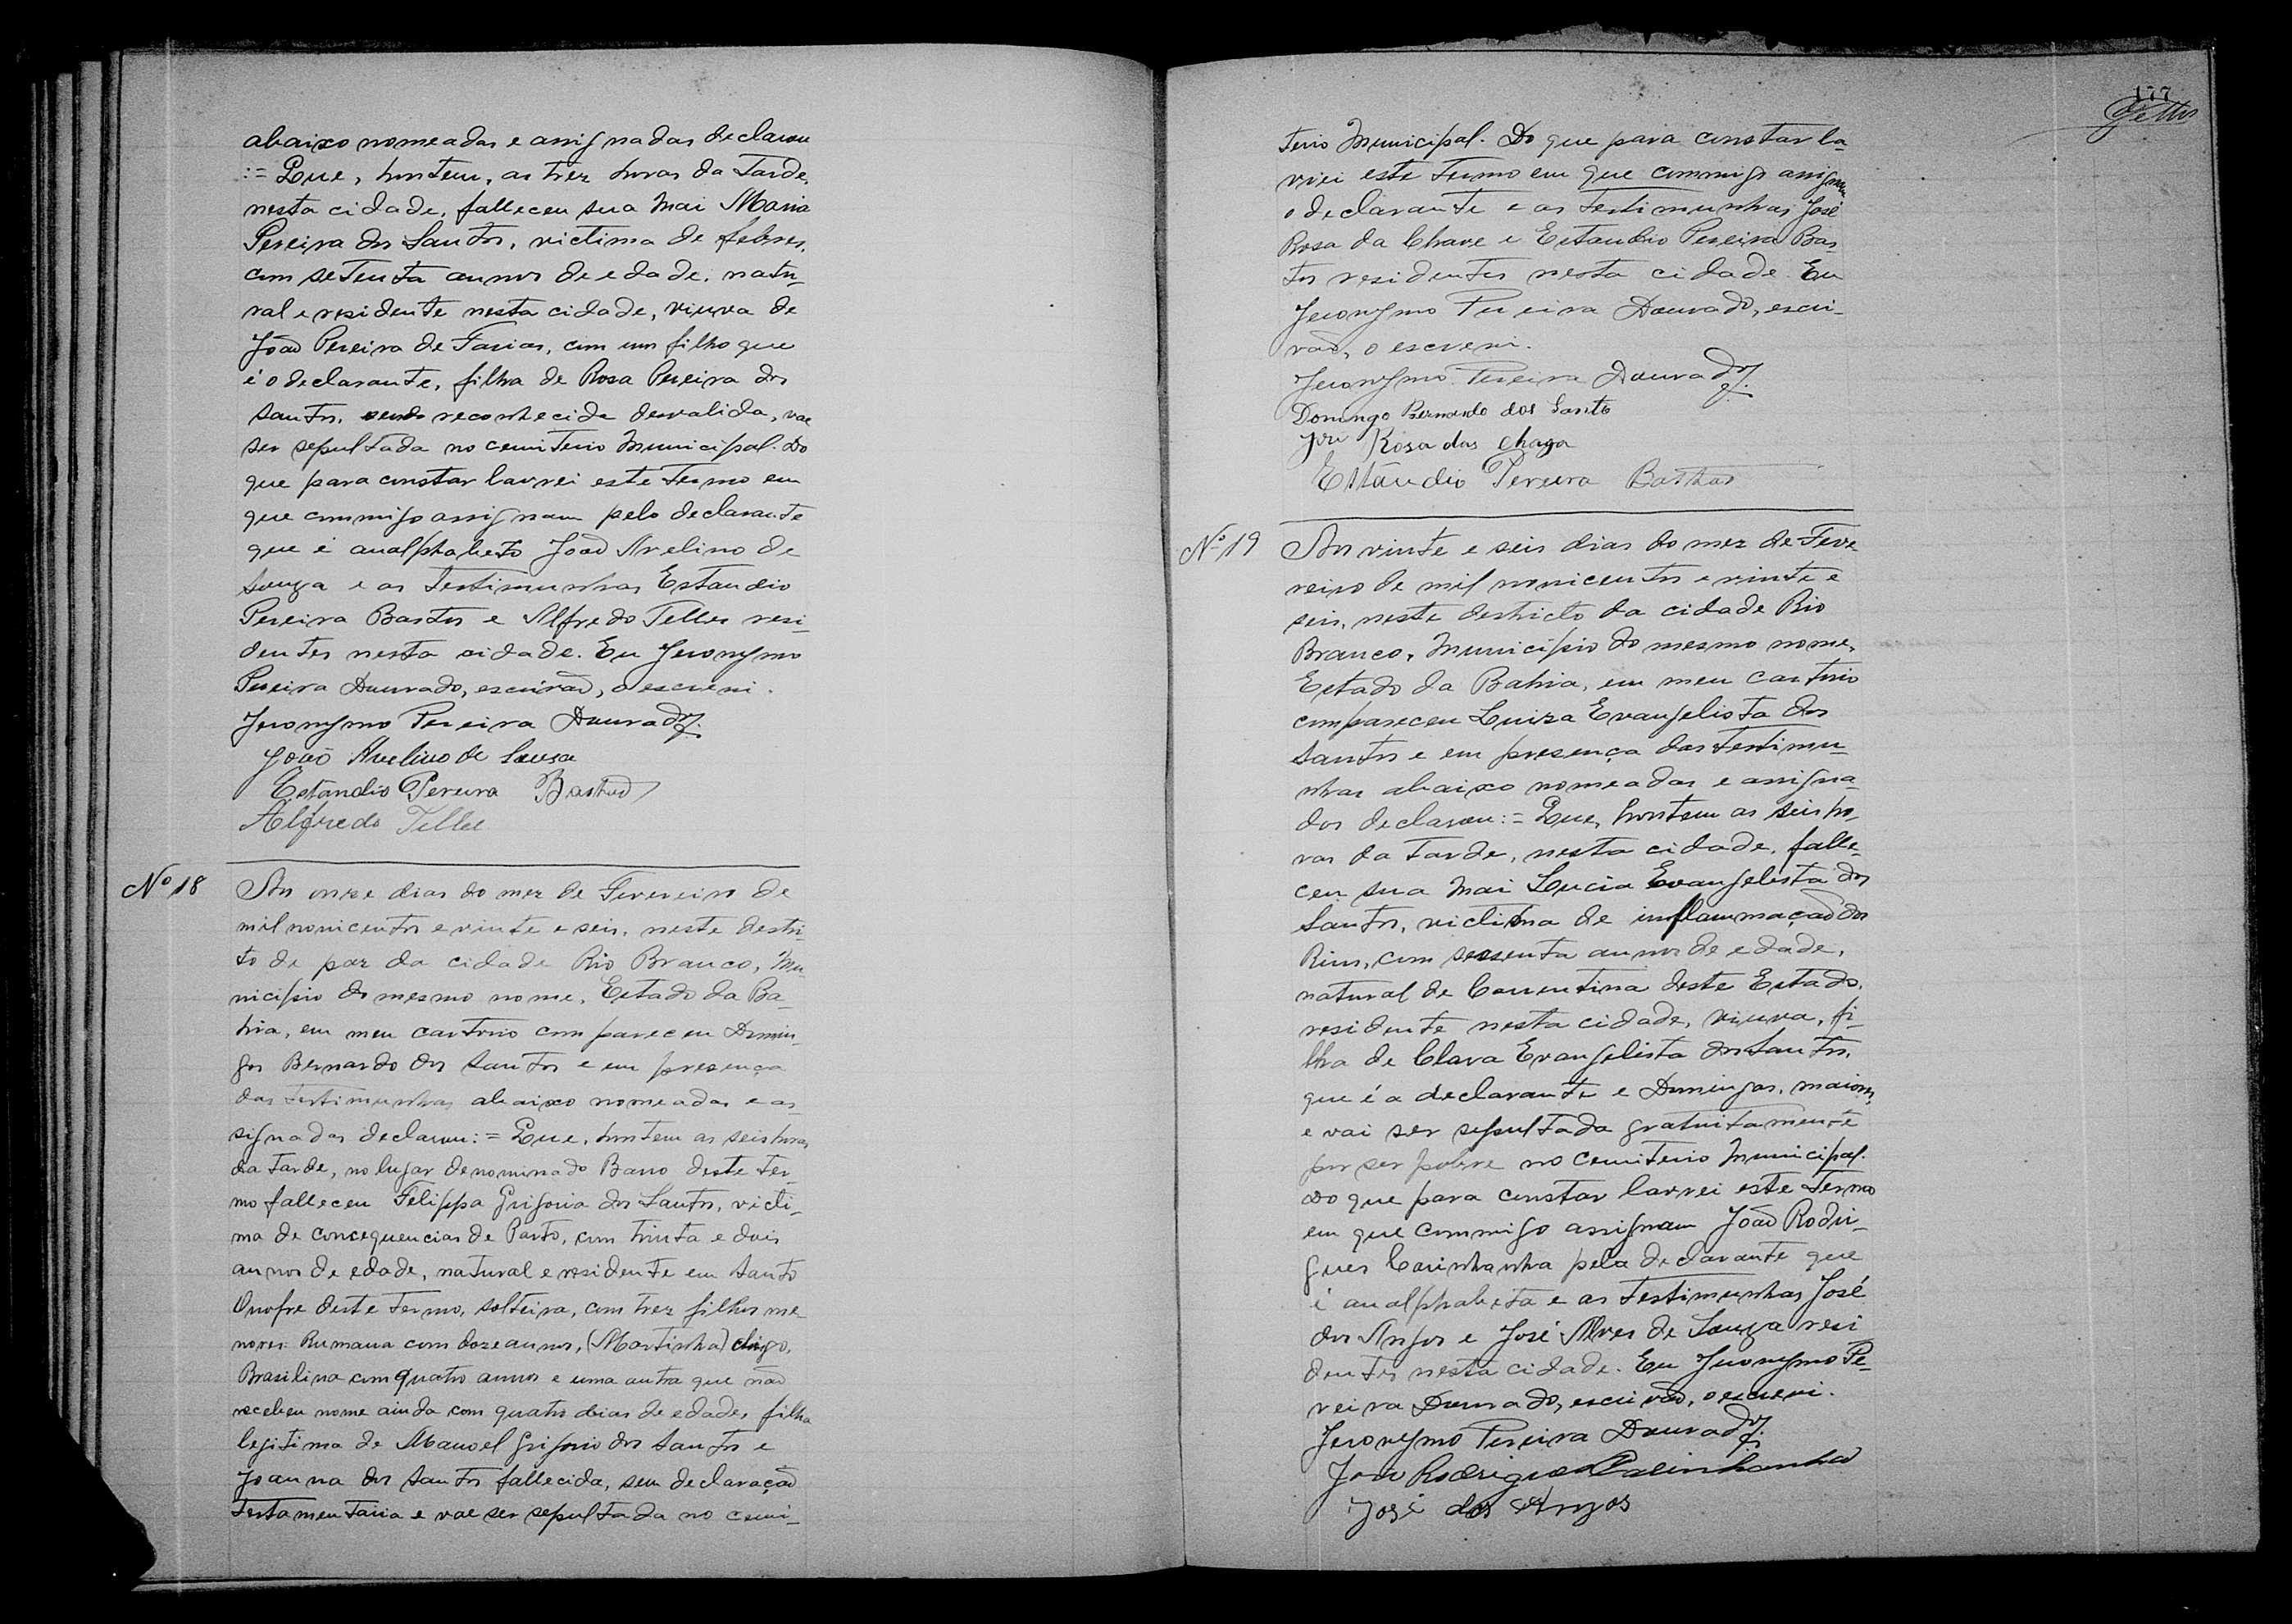 abaixo nomeadas e assignadas declarou
:= Que, hontem, as trez horas da Tarde,
nesta cidade, falleceu sua Mai Maria
Pereira dos Santos, victima de febres,
com setenta annos de edade, natu-
ral e residente nesta cidade, viuva de
João Pereira de Farias, com um filho que
é o declarante, filha de Rosa Pereira dos
Santos, sendo reconhecida desvalida, vae
ser sepultada no cemiterio Municipal. Do
que para constar lavrei este Termo em
que commigo assignam pelo declarante
que é analphabeto João Avelino de
Souza e as Testimunhas Estandio
Pereira Bastos e Alfredo Telles resi-
dentes nesta cidade. Eu Jeronymo
Pereira Dourado, escrivão, o escrevi.
Jeronymo Pereira Dourado
João Avelino de Souza
Estandio Pereira Bastus
Alfredo Telles
Nº 18
Aos onze dias do mez de Fevereiro de
mil novicentos e vinte e seis, neste destri-
to de paz da cidade Rio Branco, Mu-
nicipio do mesmo nome, Estado da Ba-
hia, em meu cartorio compareceu Domin-
gos Bernardo dos Santos e em presença
das testimunhas abaixo nomeadas e as-
signadas declarou:= Que, hontem as seis horas
da tarde, no lugar denominado Barro deste ter-
mo falleceu Felippa Grigoria dos Santos, victi-
ma de concequencias de Parto, com trinta e dois
annos de edade, natural e residente em Santo
Onofre deste Termo, solteira, com trez filhos me-
nores: Rumana com doze annos, (Martinha) digo,
Brasilina com quatro annos e uma outra que não
recebeu nome ainda com quatro dias de edade, filha
legitima de Manoel Grigorio dos Santos e
Joanna dos Santos fallecida, sem declaração
testamentaria e vae ser sepultada no cemi-
177
terio Municipal. Do que para constar la-
vrei este Termo em que commigo assignam
o declarante e as testimunhas José
Rosa da Chave e Estandio Pereira Bas-
tos residentes nesta cidade. Eu
Jeronymo Pereira Dourado, escri-
vão, o escrevi.
Jeronymo Pereira Dourado
Domingo Bernardo dos Santo
José Rosa das chaga
Estãndio Pereira Bastus
Nº 19
Aos vinte e seis dias do mez de Feve
reiro de mil novicentos e vinte e
seis, neste destricto da cidade Rio
Branco, Municipio do mesmo nome,
Estado da Bahia, em meu cartorio
compareceu Luiza Evangelista dos
Santos e em presença das testimu-
nhas abaixo nomeadas e assigna-
das declarou:= Que, hontem as seis ho-
ras da tarde, nesta cidade, falle-
ceu sua Mai Lucia Evangelista dos
Santos, victima de inflammação dos
Rins, com sessenta annos de edade,
natural de Correntina deste Estado,
residente nesta cidade, viuva, fi-
lha de Clara Evangelista dos Santos,
que é a declarante e Domingas, maiores,
e vai ser sepultada gratuitamente
por ser pobre no cemiterio Municipal.
Do que para constar lavrei este Termo
em que commigo assignam João Rodri-
gues Carinhanha pela declarante que
é analphabeta e as Testimunhas José
dos Anjos e José Alves de Souza resi
dentes nesta cidade. Eu Jeronymo Pe-
reira Dourado, escrivão, o escrevi.
Jeronymo Pereira Dourado
João Rodrigues Carinhanha
José dos Anjos